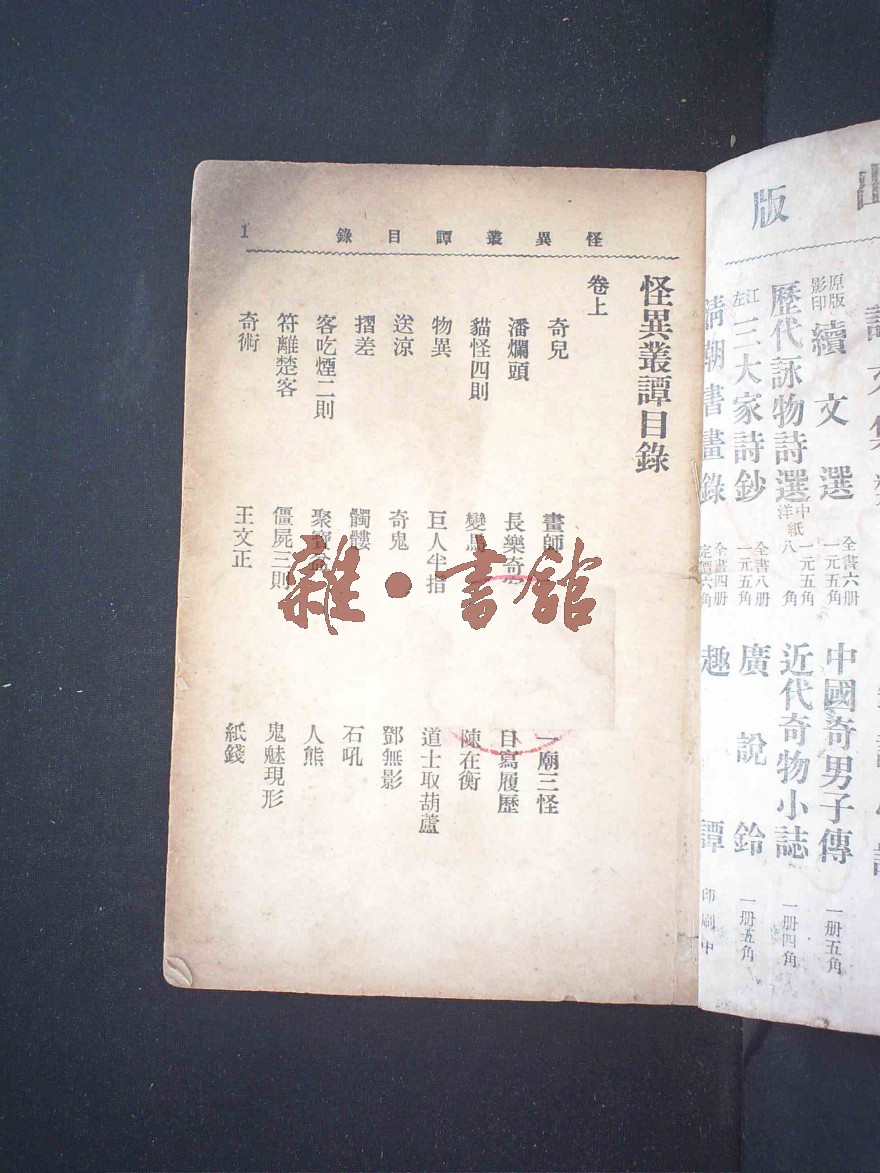 版
原版影印 續文選 全書六册 一元五角
中國奇男子傳 一册五角
歷代詠物詩選 中紙一元五角 洋紙八角
近代奇物小誌 一册四角
江左三大家詩鈔 全書八册 一元五角
廣說鈴 一册五角
清朝書畫錄 全書四册 定價六角
趣譚 印刷中
怪異叢譚目錄
1
怪異叢譚目錄
卷上
奇兒 畫師 一廟三怪
潘爛頭 長樂奇 自寫履歷
貓怪四則 變馬 陳在衡
物異 巨人半指 道士取葫蘆
送涼 奇鬼 鄧無影
摺差 髑髏 石吼
客吃煙二則 聚寶盆 人熊
符離楚客 僵屍三則 鬼魅現形
奇術 王文正 紙錢
雜·書館